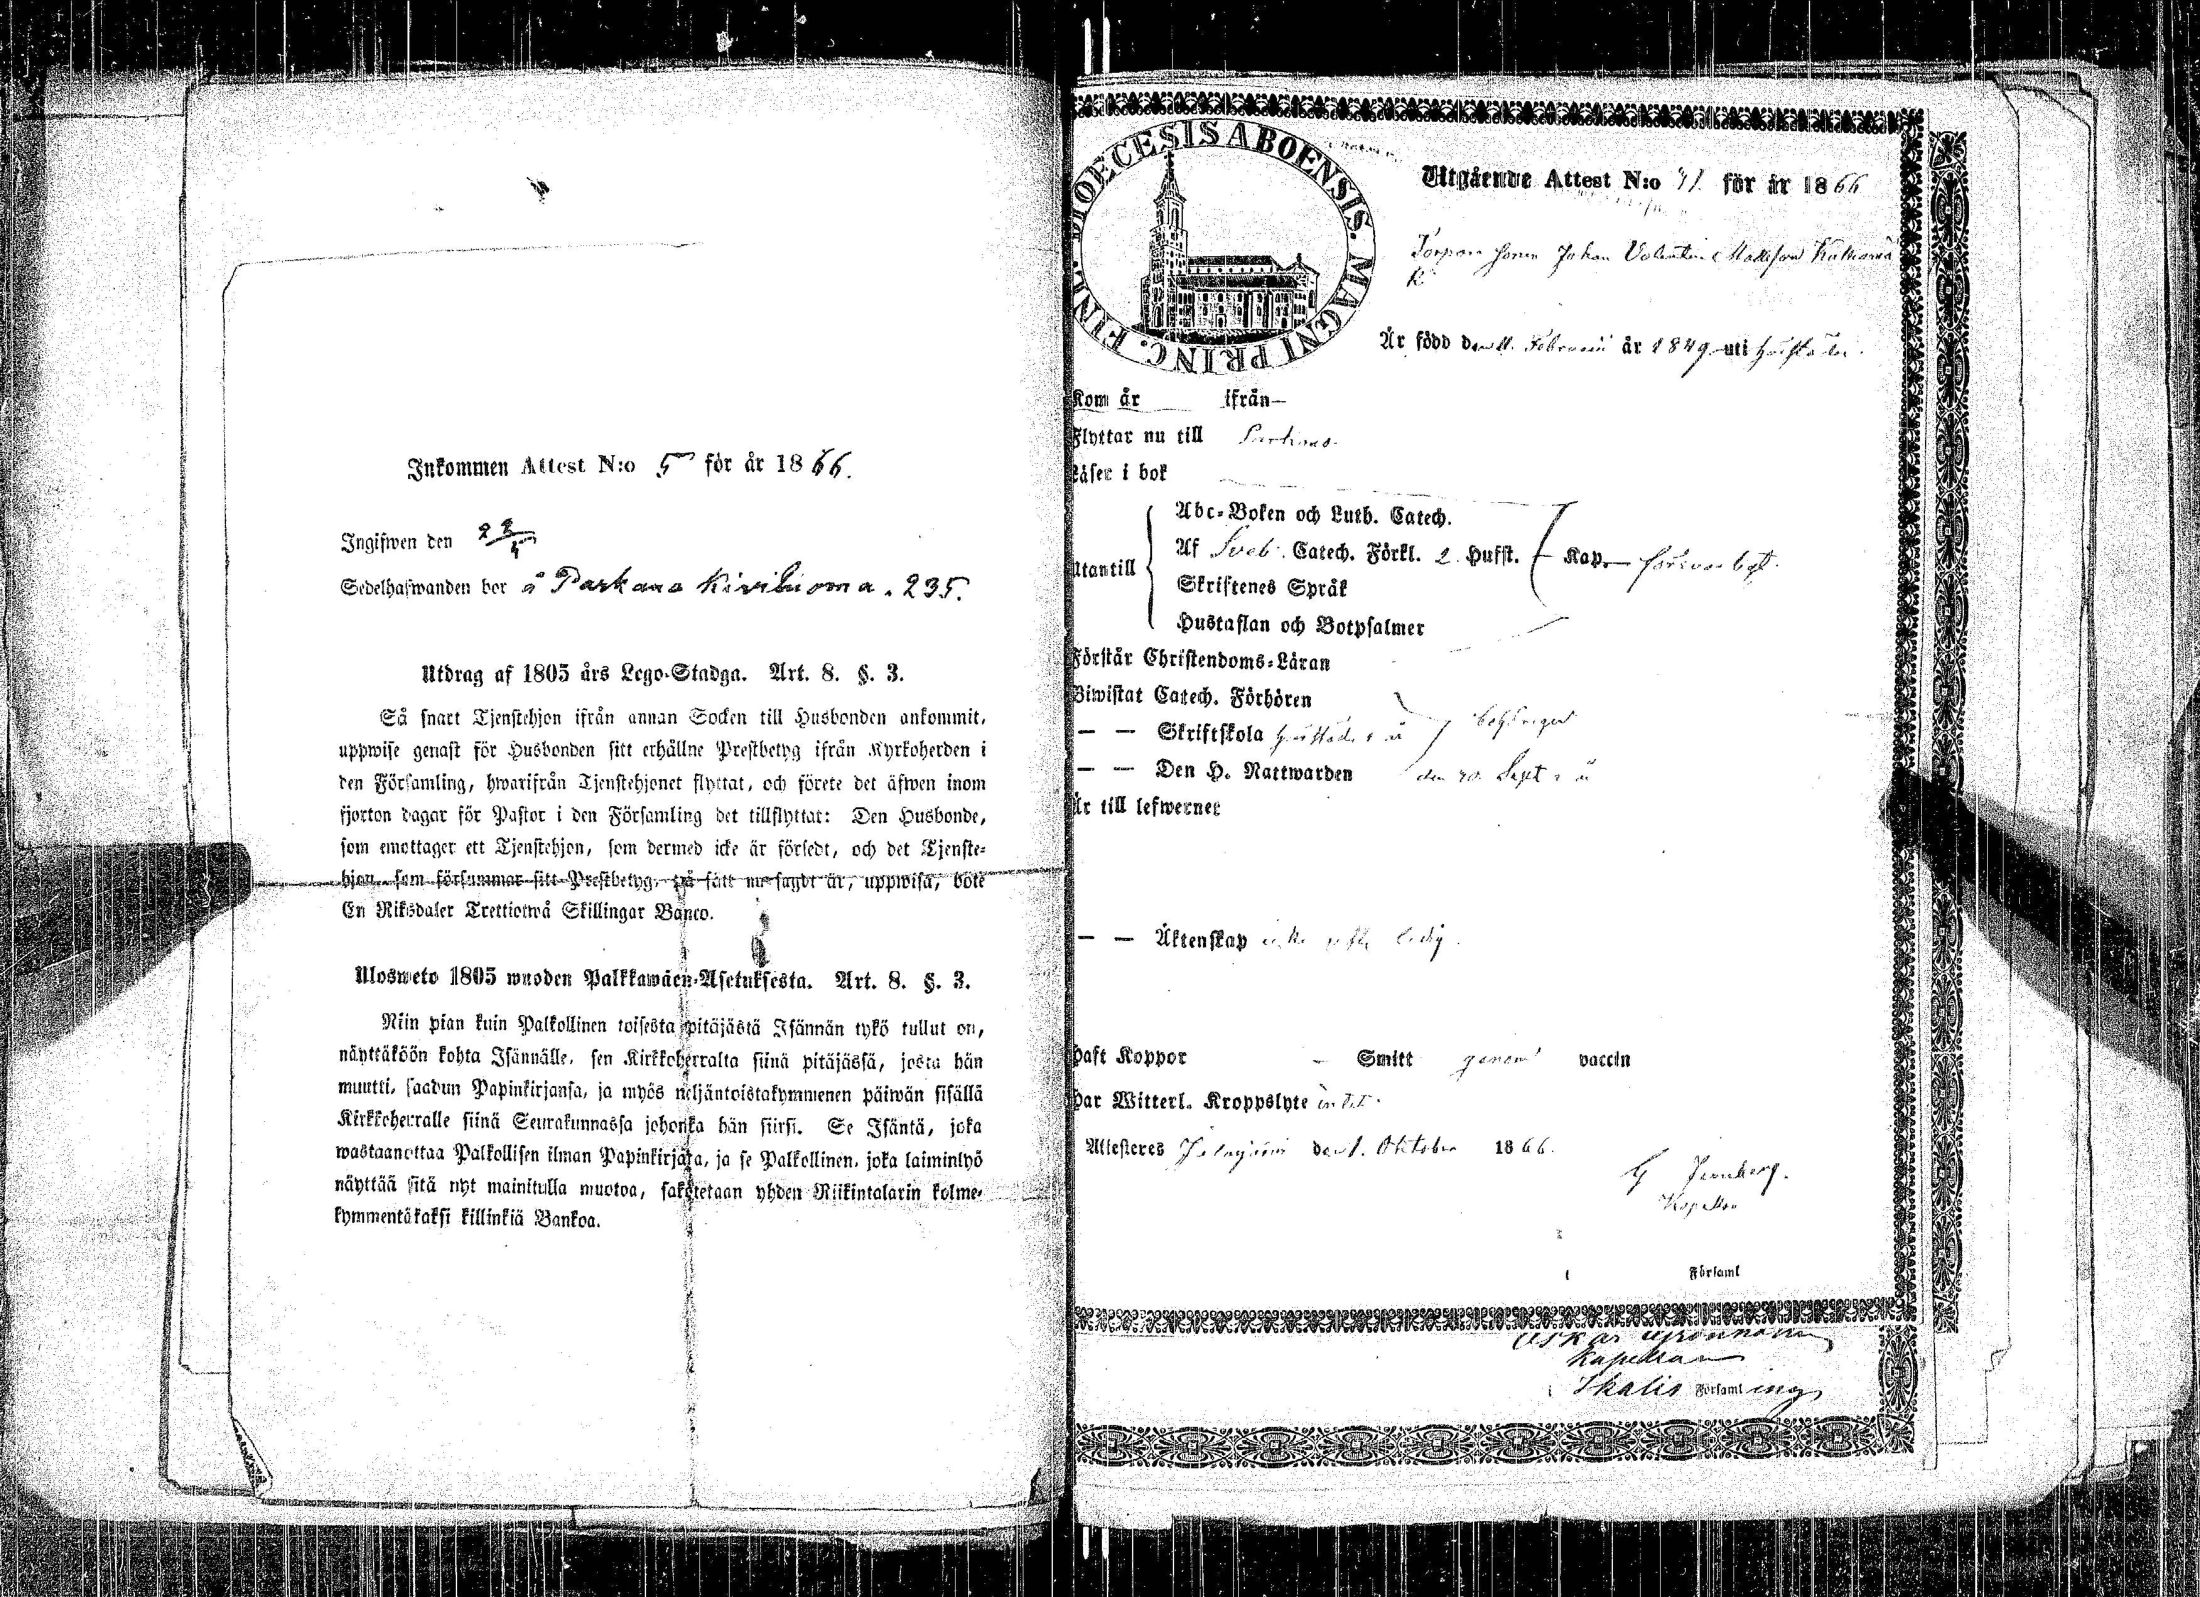 Inkommen Attest N:o 5 för år 1866.
Ingifwen den 22/4
Sedelhafwanden bor å Parkano Kivihuoma. 235.
Utdrag af 1805 års Lego-Stadga. Art. 8. §. 3.
Så snart Tjenstehjon ifrån annan Socken till Husbonden ankommit,
uppwise genast för Husbonden sitt erhållne Prestbetyg ifrån Kyrkoherden i
den Församling, hwarifrån Tjenstehjonet flyttat, och förete det äfwen inom
fjorton dagar för Pastor i den Församling det tillflyttat: Den Husbonde,
som emottager ett Tjenstehjon, som dermed icke är försedt, och det Tjenste-
hjon, som försummar sitt Prestbetyg, på sätt nu sagdt är, uppwisa, böte
En Riksdaler Trettiotwå Skillingar Banco.
Ulosweto 1805 wuoden Palkkawäen-Asetuksesta. Art. 8. §. 3.
Niin pian kuin Palkollinen toisesta pitäjästä Isännän tykö tullut on,
näyttäköön kohta Isännälle, sen Kirkkoherralta siinä pitäjässä, josta hän
muutti, saadun Papinkirjansa, ja myös neljäntoistakymmenen päiwän sisällä
Kirkkoherralle siinä Seurakunnassa johonka hän siirsi. Se Isäntä, joka
wastaanottaa Palkollisen ilman Papinkirjata, ja se Palkollinen, joka laiminlyö
näyttää sitä nyt mainitulla muotoa, sakotetaan yhden Riikintalarin kolme-
kymmentäkaksi killinkiä Bankoa.
DIOECESIS ABOENSIS. MAGNI PRINC. FINL.
Utgående Attest N:o 41 för år 1866
Johan Valentin Mattsson
Är född den 11. Februarii år 1849 uti
Kom år ifrån
Flyttar nu till Parkano
Läser i bok
Utantill
Abc-Boken och Luth. Catech.
Af Sveb. Catech. Förkl. 2 Hufst. Kap. försvarligt.
Skriftenes Språk
Hustaflan och Botpsalmer
Förstår Christendoms-Läran
Biwistat Catech. Förhören
— — Skriftskola
— — Den H. Nattwarden den 30. Sept
Är till lefwernet
— — Äktenskap icke ledig.
Haft Koppor – Smitt genom vaccin
Har Witterl. Kroppslyte intet.
Attesteres den 1. Oktober 1866.
G Jernberg.
Kapellan
Församl
Oskar
Kapellan
Ikalis Församling